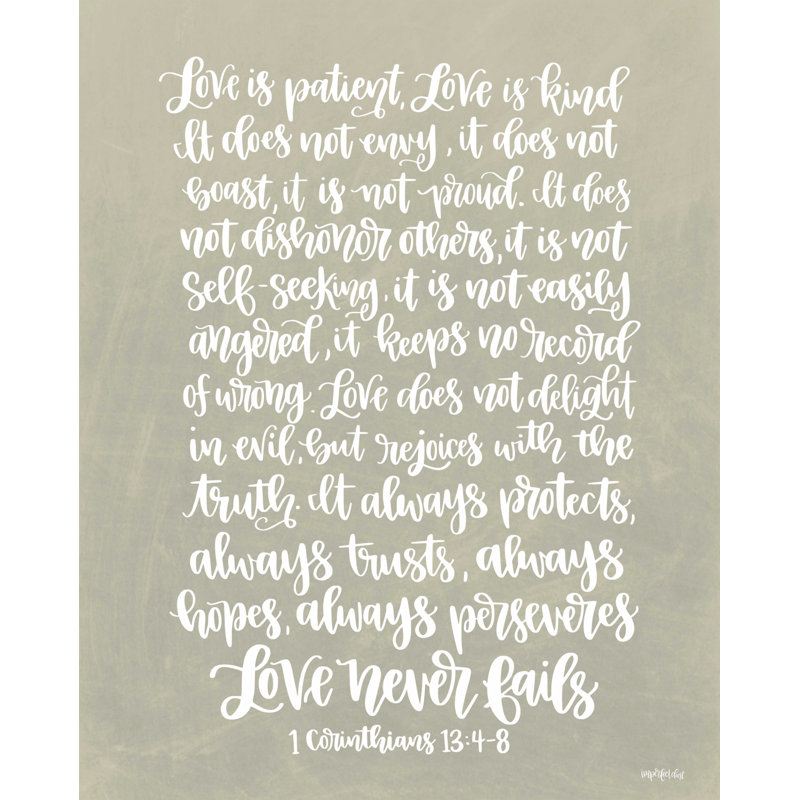 Love is patient, Love is kind
It does not envy, it does not
boast, it is not proud. It does
not dishonor others, it is not
self-seeking, it is not easily
angered, it keeps no record
of wrong. Love does not delight
in evil, but rejoices with the
truth. It always protects,
always trusts, always
hopes, always perseveres
Love never fails
1 Corinthians 13:4-8
imperfect dust